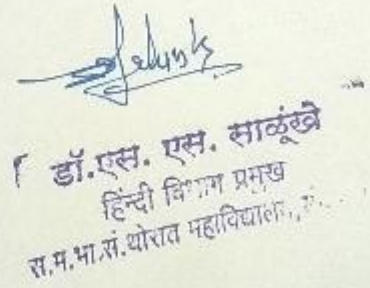 डॉ.एस. एस. साळूंखे
हिंदी विभाग प्रमुख
स.म.भा.सं.थोरात महाविद्यालय,